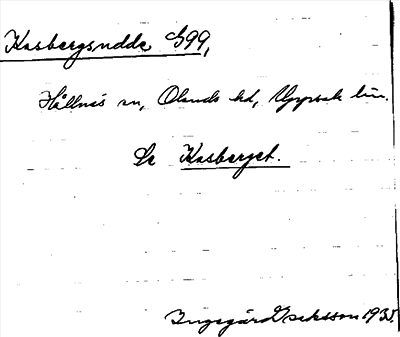 Kasbergsudde S99,
Hållnäs sn, Olands hd, Uppsala län.
Se Kasberget.
Ingegärd Isaksson 1935.